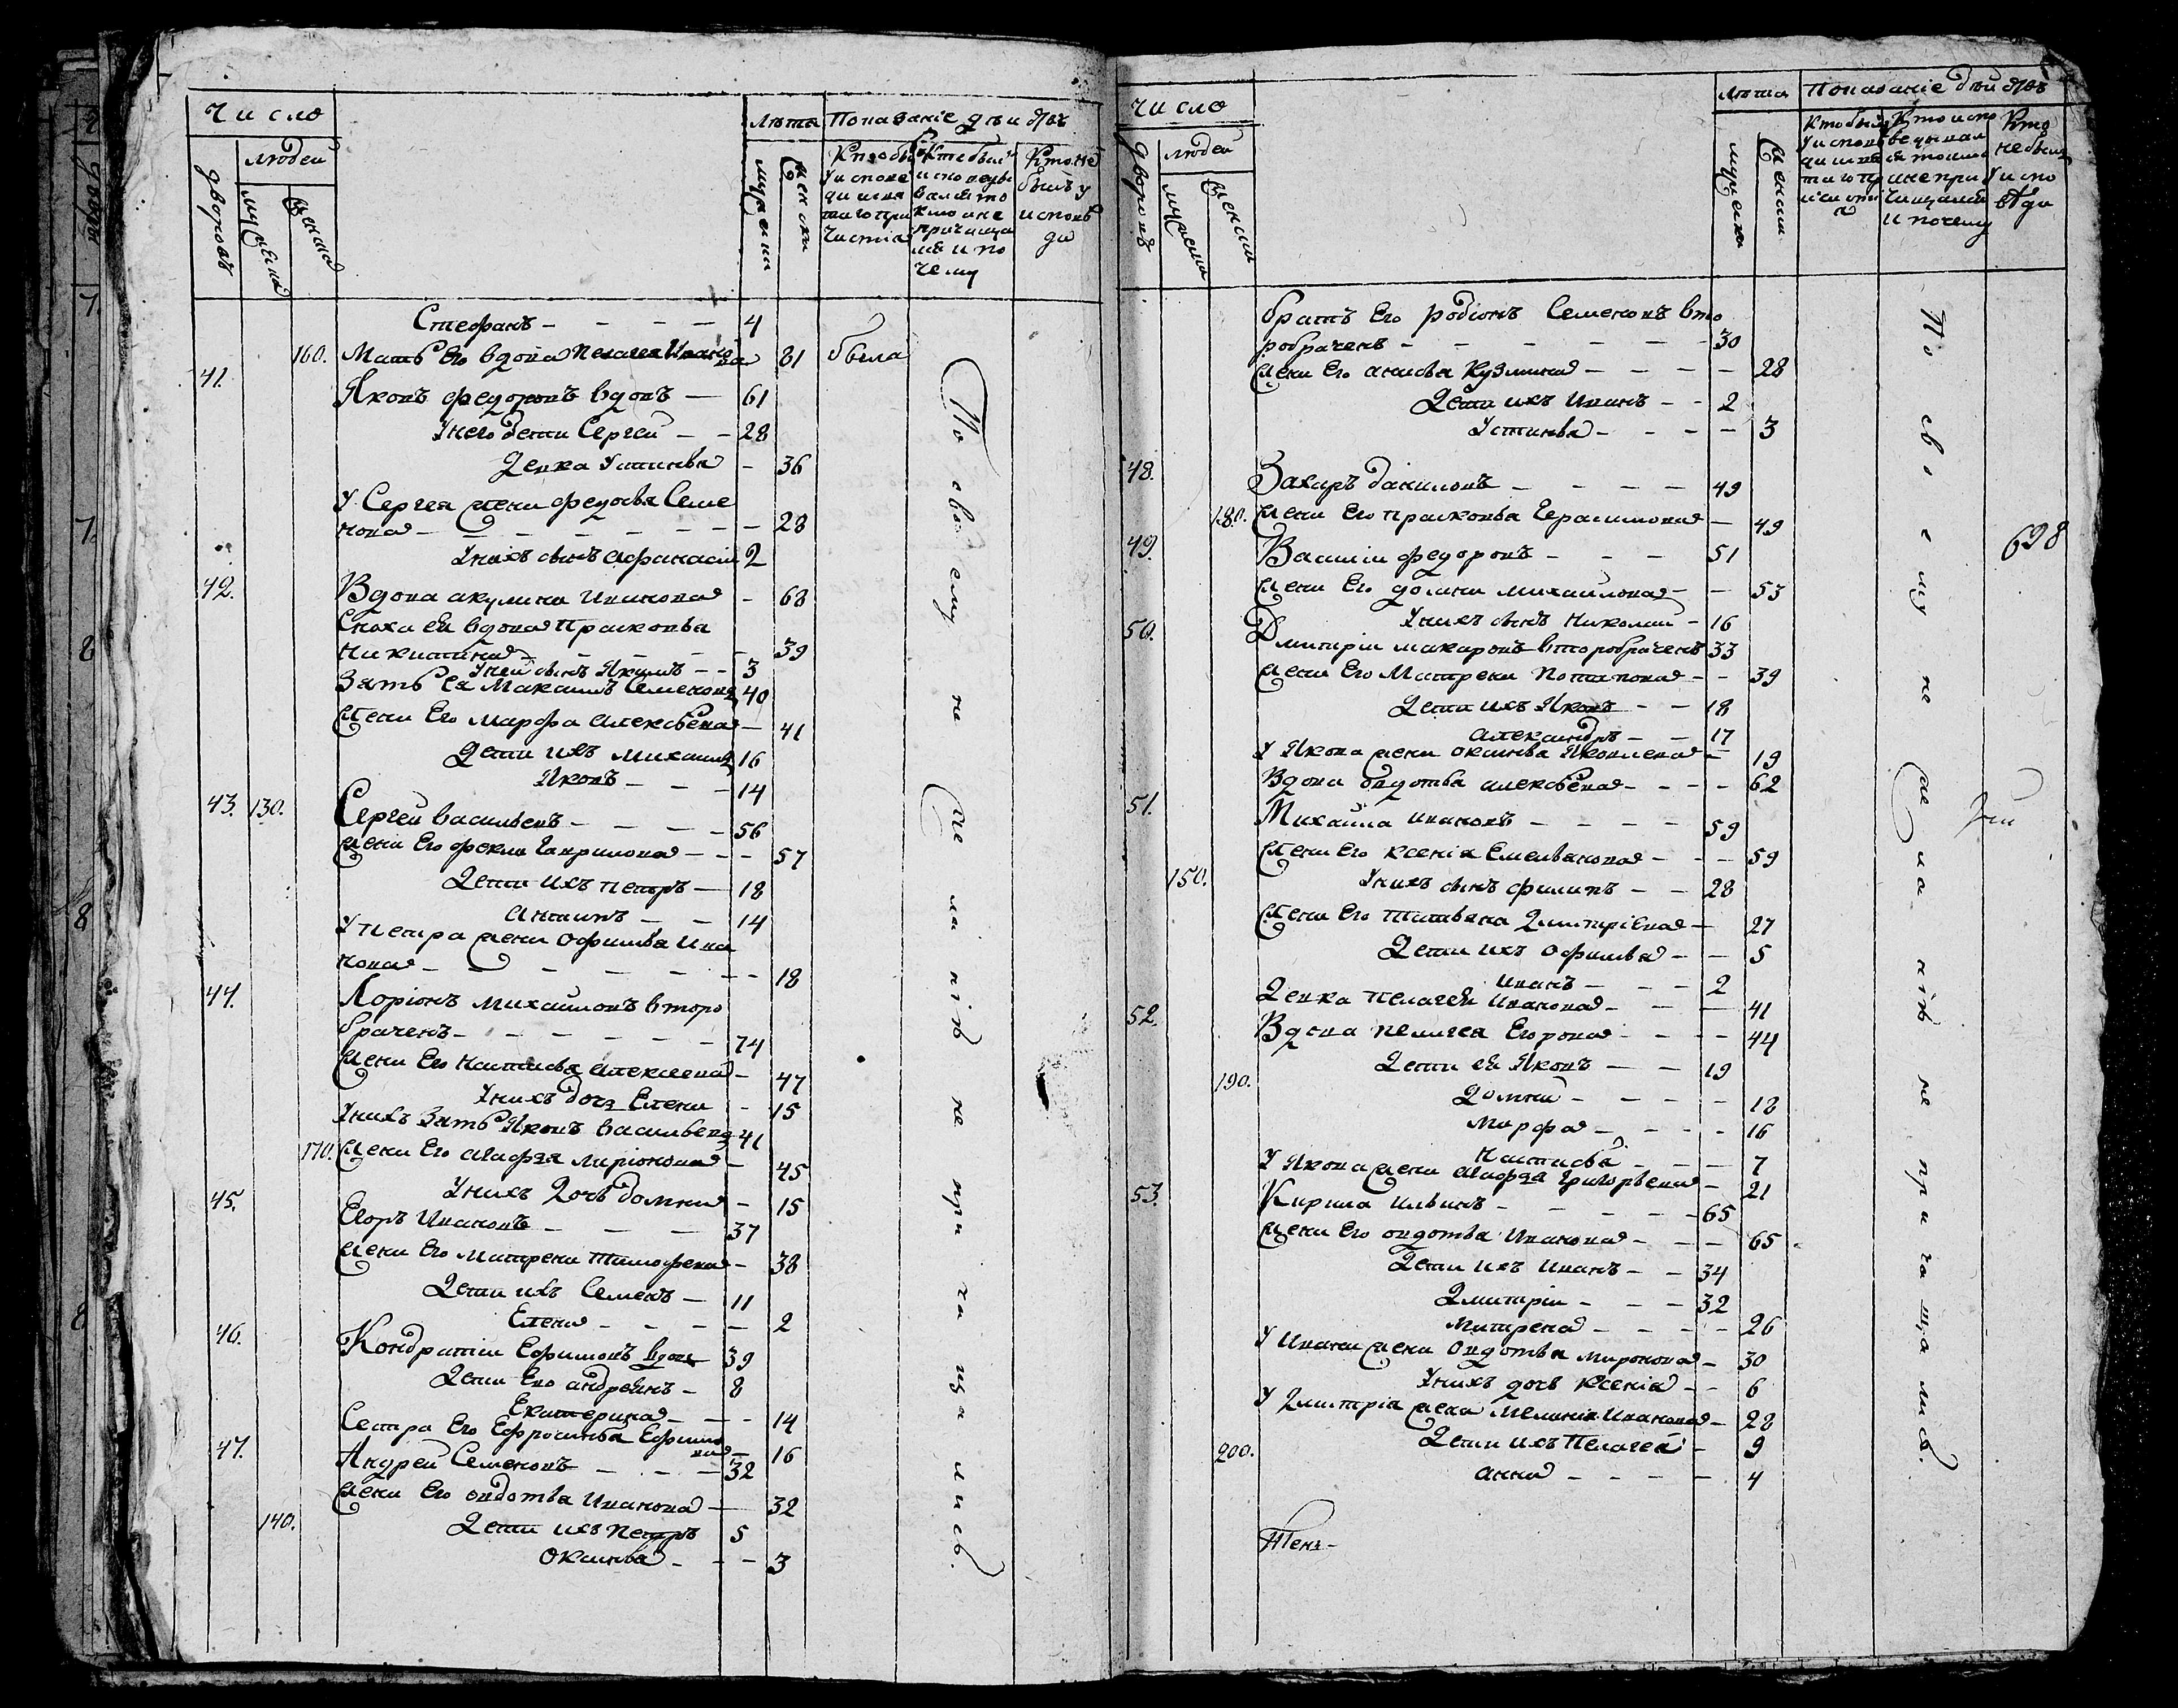 Число
Лѣта Показанiе дѣйствъ
людей
дворовъ
мужеска
женска
мужески
женски
Кто не
былъ у
исповѣ
ди
Стефанъ - - - - 4
160. Мать его вдова Пелагея Иванова 81 была
41. Яковъ Федоровъ вдовъ - 61
У него дети Сергей - - 28
Девка Устинья - 36
У Сергея жена Федосья Семе
нова - - - - - 28
У нихъ сынъ Афанасiй 2
42. Вдова Акулина Иванова - 68
Сноха ея вдова Прасковья
Никитина - - - - 39
У ней сынъ Якимъ - - 3
Зять ея Максимъ Семеновъ 40
Жена его Марфа Алексѣева - 41
Дети ихъ Михаилъ 16
Яковъ - - - 14
43. 130. Сергей Васильевъ - - - - 56
Жена его Фекла Гаврилова - - - 57
Дети ихъ Петръ - 18
Антипъ - - 14
У Петра жена Офимья Ива
нова - - - - - - - 18
44. Ларiонъ Михайловъ второ
браченъ - - - - - - 74
Жена его Настасья Алексеева - 47
У нихъ дочь Елена - 15
У нихъ зять Яковъ Васильевъ 41
170. Жена его Агафья Ларiонова - 45
У нихъ дочь Домна - 15
45. Егоръ Ивановъ - - - 37
Жена его Матрена Тимофеева - 38
Дети ихъ Семенъ - 11
Елена - - - - 2
46. Кондратiй Ефимовъ вдовъ 39
Дети его Андреянъ - 8
Екатерина - - - 14
Сестра его Ефросинья Ефимо
ва - 16
47. Андрей Семеновъ - - - 32
Жена его Овдотья Иванова - 32
140. Дети ихъ Петръ 5
Оксинья - - - 3
По своему не желанiю не причащались.
Число
Лѣта Показанiе дѣйствъ
людей
дворовъ
мужеска
женска
мужеска
женска
Кто
не былъ
у испо
вѣди
Братъ его Родiонъ Семеновъ вто
робраченъ - - - - - - 30
Жена его Анисья Кузмина - - - - 28
Дети ихъ Иванъ - - 2
Устинья - - - - 3
48. Захаръ Даниловъ - - - - 49
180. Жена его Прасковья Герасимова - 49
49. Василiй Федоровъ - - - 51
Жена его Домна Михайлова - - 53
У нихъ сынъ Николай - 16
50. Дмитрiй Макаровъ второбраченъ 33
Жена его Матрена Потапова - - 39
Дети ихъ Яковъ - - 18
Александръ - - 17
У Якова жена Оксинья Яковлева - 19
Вдова Овдотья Алексѣева - - - - 62
51. Михайла Ивановъ - - - - 59
Жена его Ксенiя Емельянова - - - 59
150. У нихъ сынъ Филипъ - - 28
Жена его Татьяна Дмитрiева - 27
Дети ихъ Офимья - - 5
Иванъ - - - 2
Девка Пелагея Иванова - - - 41
52. Вдова Пелагея Егорова - - - - 44
Дети ея Яковъ - - 19
190. Домна - - - - 18
Марфа - - - - 16
Настасья - - - 7
У Якова жена Агафья Григорьева - 21
53. Кирила Ильинъ - - - - - 65
Жена его Овдотья Иванова - - - 65
Дети ихъ Иванъ - - 34
Дмитрiй - - - 32
Матрена - - - - 26
У Ивана жена Овдотья Миронова - 30
У нихъ дочь Ксенiя - - 6
У Дмитрiя жена Меланiя Иванова - 28
200. Дети ихъ Пелагея - 9
Анна - - - - 4
По своему не желанiю не причащались.
698